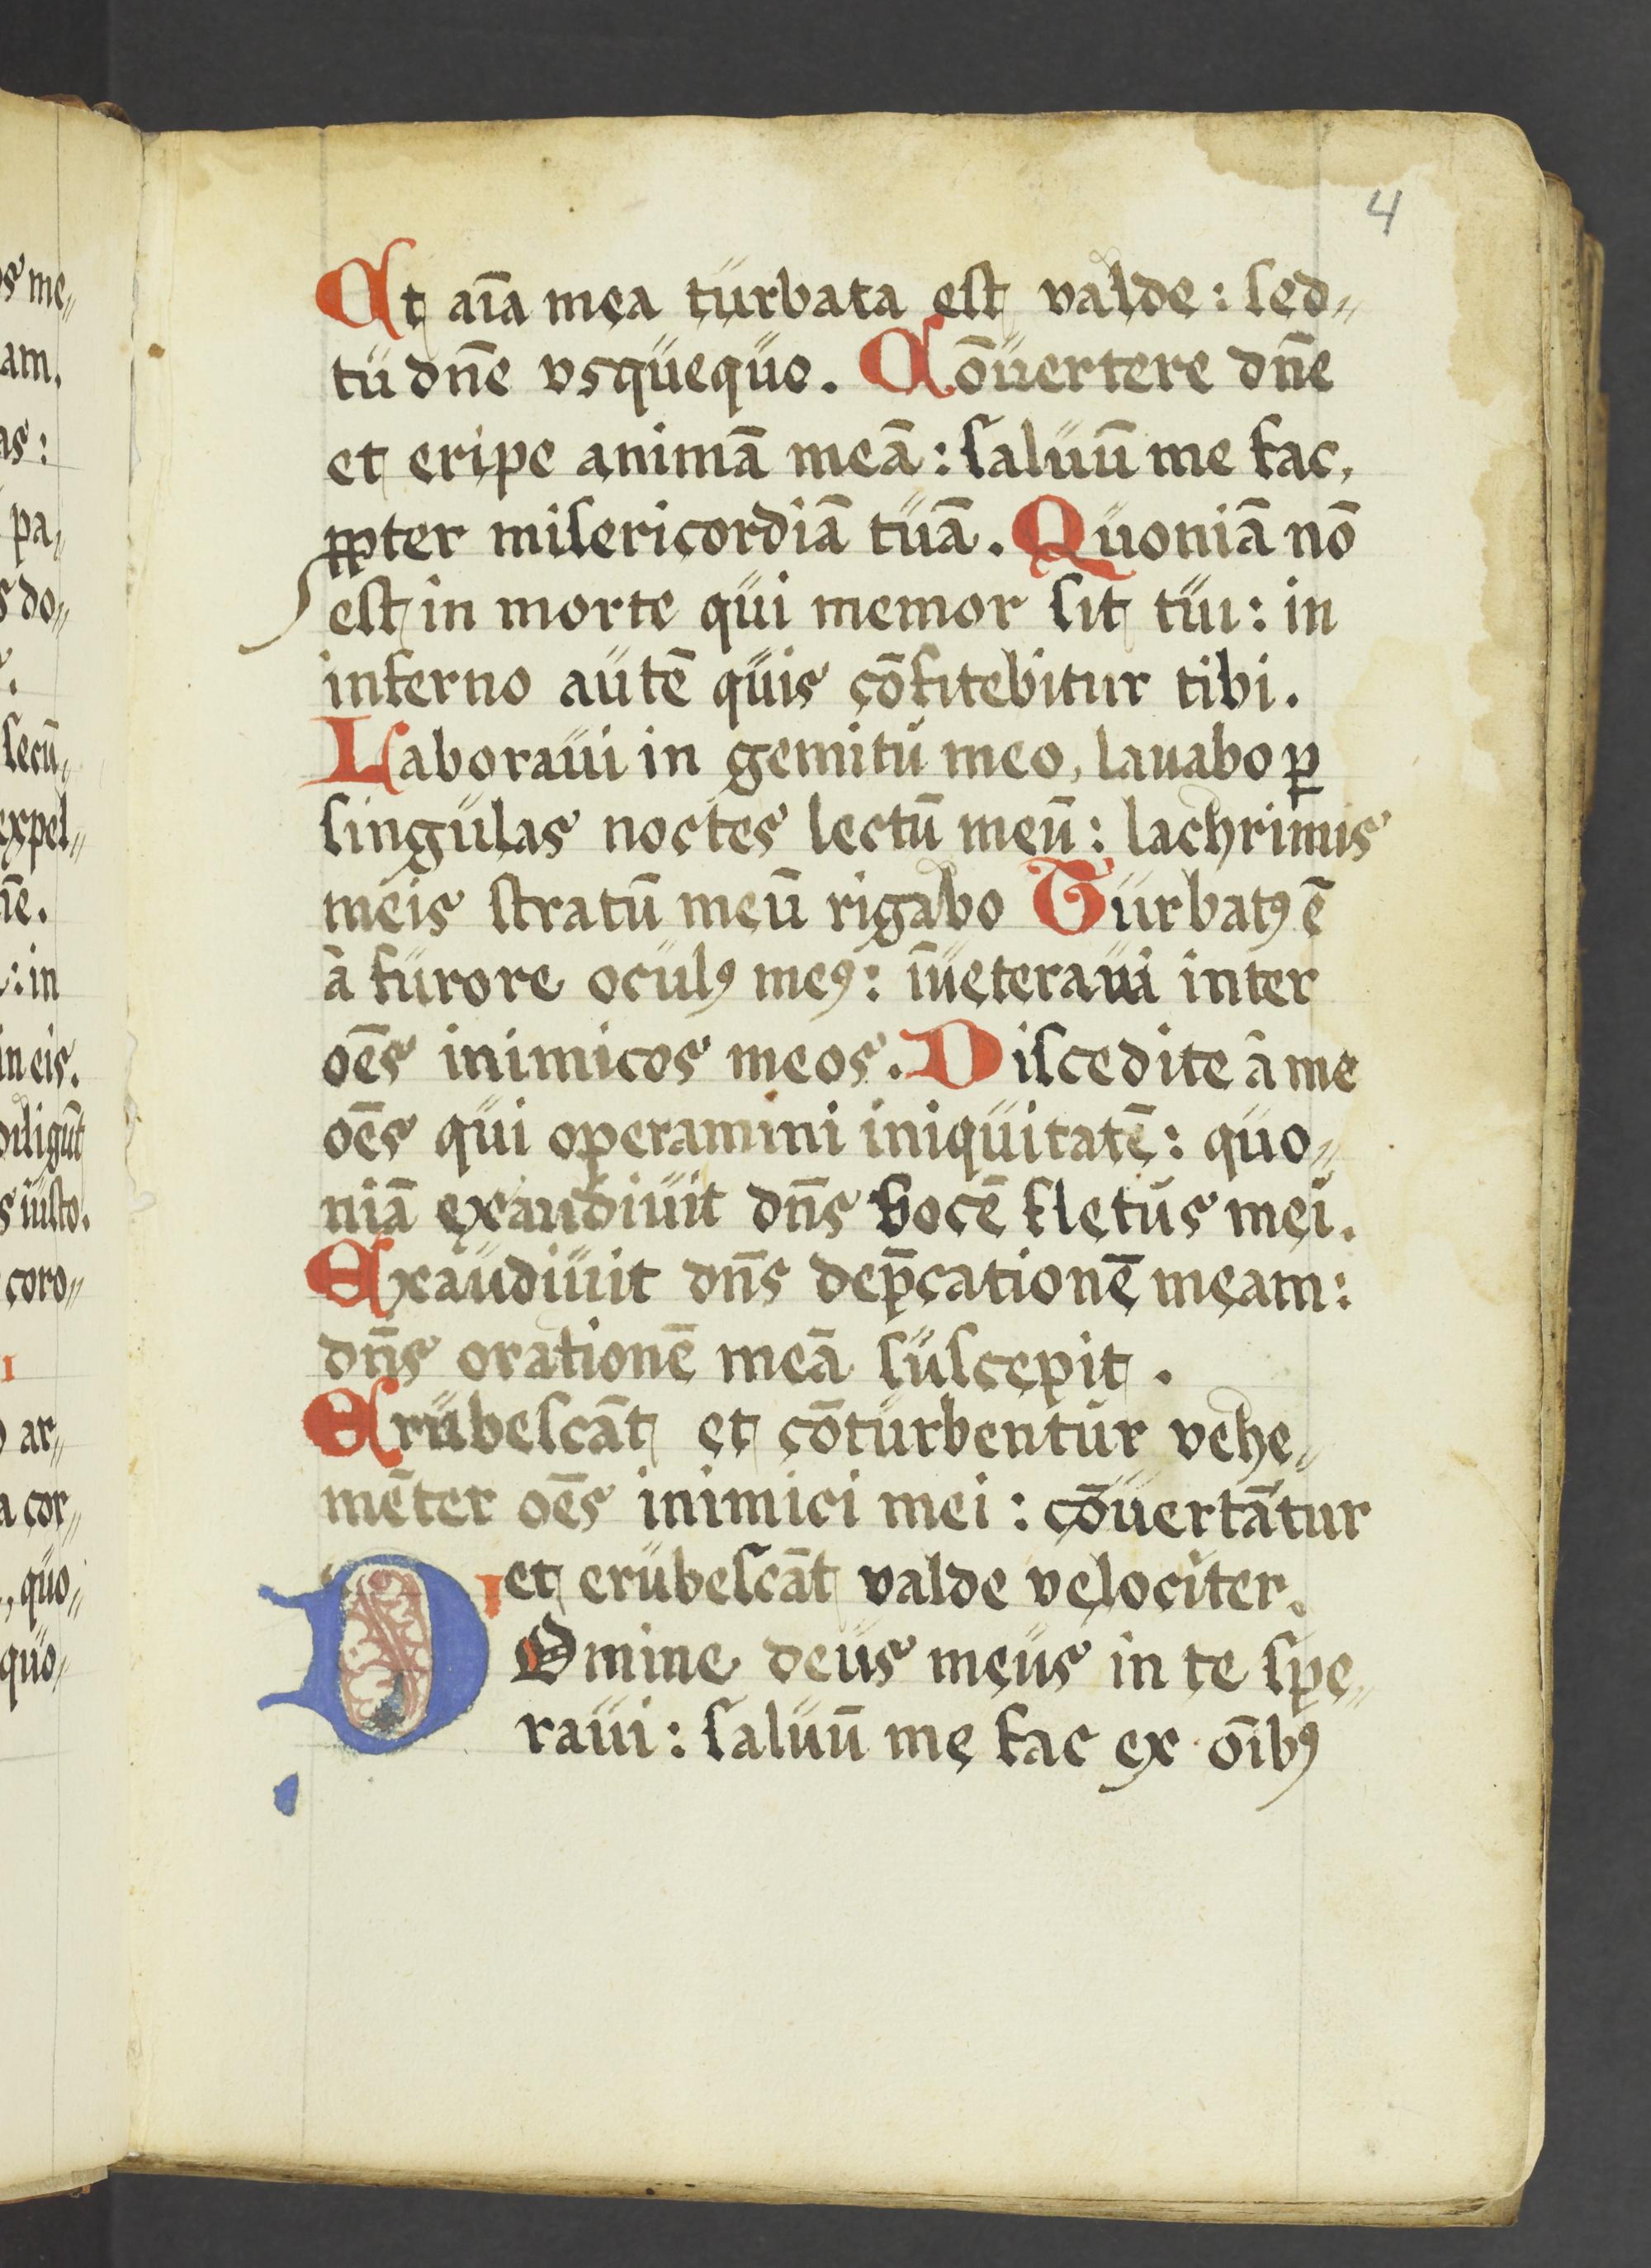 4
Et aīa mea turbata est valde: sed„
tu dn̄e vsquequo. Cōuertere dn̄e
et eripe animā meā: saluū me fac,
ꝓpter misericordiā tuā. Quoniā nō
est in morte qui memor sit tui: in
inferno autē quis cōfitebitur tibi.
Laboraui in gemitu meo, lauabo ꝑ
singulas noctes lectū meū: lachrimis
meis stratū meū rigabo Turbatꝰ ē
â furore oculꝰ meꝰ: īueteraui inter
oēs inimicos meos. Discedite â me
oēs qui operamini iniquitatē: quo„
niā exaudiuit dn̄s vocē fletus mei.
Exaudiuit dn̄s dep̄cationē meam:
dn̄s orationē meā suscepit.
Erubescāt et cōturbentur vehe„
mēter oēs inimici mei: cōuertātur
et erubescāt valde velociter.
DOmine deus meus in te spe„
raui: saluū me fac ex oībꝰ
s me„
am.
as:
pa„
s do„
secū„
expel„
nē.
: in
in eis.
diligūt
s iusto.
coro„
ar„
a cor„
, quo„
quo„